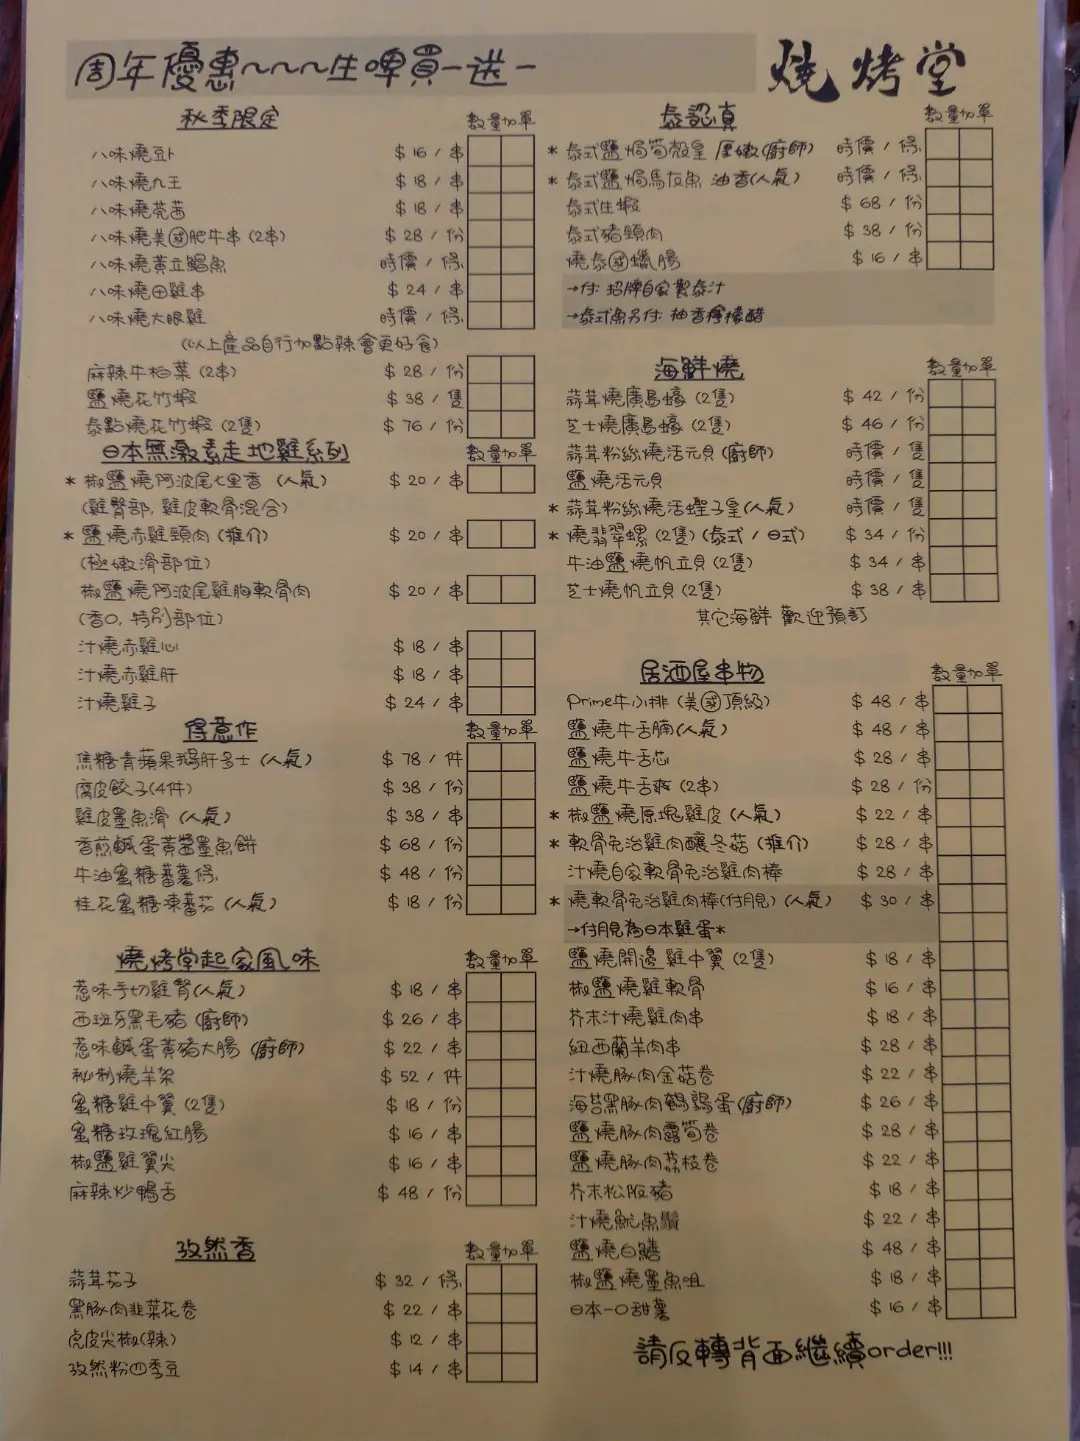 周年優惠~~~生啤買一送一
燒烤堂
秋季限定 數量加單
八味燒豆卜 $16/串
八味燒九王 $18/串
八味燒芫茜 $18/串
八味燒美國肥牛串(2串) $28/份
八味燒黃立鯧魚 時價/條
八味燒田雞串 $24/串
八味燒大眼雞 時價/條
(以上產品自行加點辣會更好食)
麻辣牛柏葉(2串) $28/份
鹽燒花竹蝦 $38/隻
泰點燒花竹蝦(2隻) $76/份
日本無激素走地雞系列 數量加單
* 椒鹽燒阿波尾七里香(人氣) $20/串
(雞臀部, 雞皮軟骨混合)
* 鹽燒赤雞頸肉(推介) $20/串
(極嫩滑部位)
椒鹽燒阿波尾雞胸軟骨肉 $20/串
(香口, 特別部位)
汁燒赤雞心 $18/串
汁燒赤雞肝 $18/串
汁燒雞子 $24/串
得意作 數量加單
焦糖青蘋果鵝肝多士(人氣) $78/件
腐皮餃子(4件) $38/份
雞皮墨魚滑(人氣) $38/串
香煎鹹蛋黃醬墨魚餅 $68/份
牛油蜜糖蕃薯條 $48/份
桂花蜜糖凍蕃茄(人氣) $18/份
燒烤堂起家風味 數量加單
惹味手切雞腎(人氣) $18/串
西班牙黑毛豬(廚師) $26/串
惹味鹹蛋黃豬大腸(廚師) $22/串
秘制燒羊架 $52/件
蜜糖雞中翼(2隻) $18/份
蜜糖玫瑰紅腸 $16/串
椒鹽雞翼尖 $16/串
麻辣炒鴨舌 $48/份
孜然香 數量加單
蒜茸茄子 $32/條
黑豚肉韭菜花卷 $22/串
虎皮尖椒(辣) $12/串
孜然粉四季豆 $14/串
泰認真 數量加單
* 泰式鹽焗筍殼皇 厚嫩(廚師) 時價/條
* 泰式鹽焗馬友魚 油香(人氣) 時價/條
泰式生蝦 $68/份
泰式豬頸肉 $38/份
燒泰國蠟腸 $16/串
→付: 招牌自家製泰汁
→泰式魚另付: 柚香檸檬醋
海鮮燒 數量加單
蒜茸燒廣島蠔(2隻) $42/份
芝士燒廣島蠔(2隻) $46/份
蒜茸粉絲燒活元貝(廚師) 時價/隻
鹽燒活元貝 時價/隻
* 蒜茸粉絲燒活蟶子皇(人氣) 時價/隻
* 燒翡翠螺(2隻)(泰式/日式) $34/份
牛油鹽燒帆立貝(2隻) $34/串
芝士燒帆立貝(2隻) $38/串
其它海鮮 歡迎預訂
居酒屋串物 數量加單
Prime牛小排(美國頂級) $48/串
鹽燒牛舌腩(人氣) $48/串
鹽燒牛舌芯 $28/串
鹽燒牛舌爽(2串) $28/份
* 椒鹽燒原塊雞皮(人氣) $22/串
* 軟骨免治雞肉釀冬菇(推介) $28/串
汁燒自家軟骨免治雞肉棒 $28/串
* 燒軟骨免治雞肉棒(付月見)(人氣) $30/串
→付月見為日本雞蛋*
鹽燒開邊雞中翼(2隻) $18/串
椒鹽燒雞軟骨 $16/串
芥末汁燒雞肉串 $18/串
紐西蘭羊肉串 $28/串
汁燒豚肉金菇卷 $22/串
海苔黑豚肉鵪鶉蛋(廚師) $26/串
鹽燒豚肉露筍卷 $28/串
鹽燒豚肉荔枝卷 $22/串
芥末松阪豬 $18/串
汁燒魷魚鬚 $22/串
鹽燒白鱔 $48/串
椒鹽燒墨魚咀 $18/串
日本一口甜薯 $16/串
請反轉背面繼續order!!!